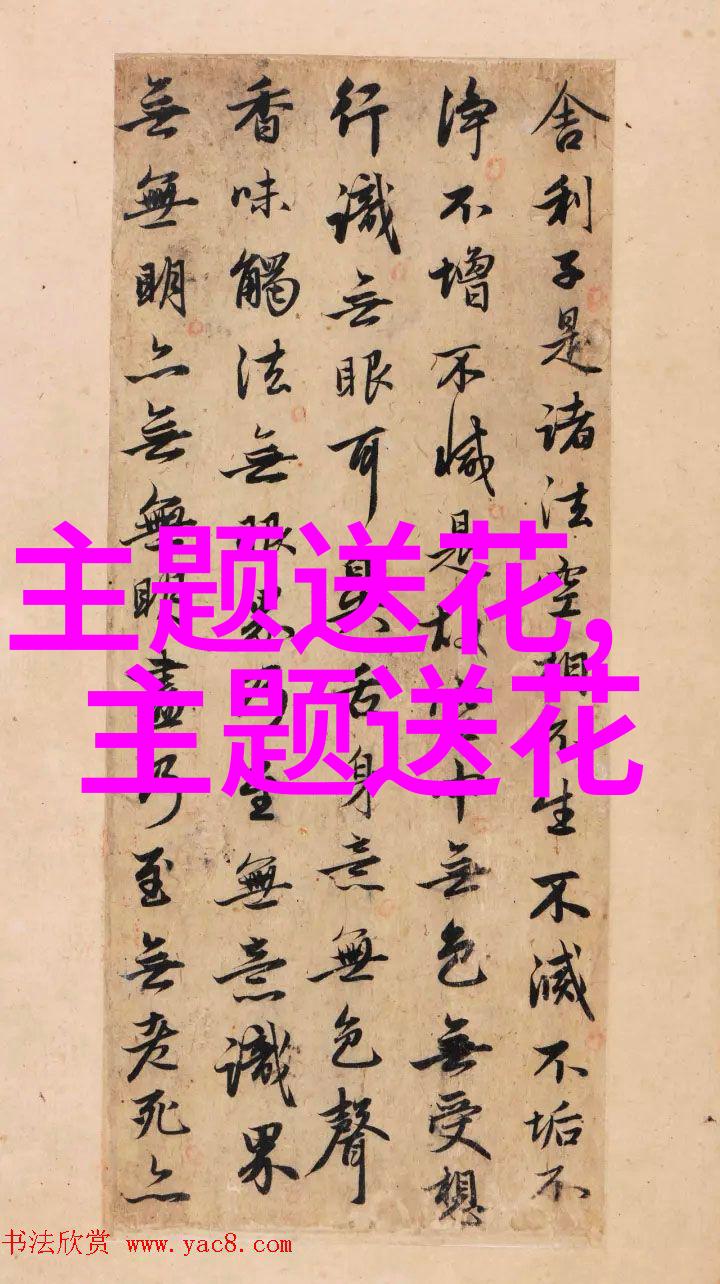 舍利子是諸法空相不生不滅不垢不
淨不增不減是故空中無色無受想
行識無眼耳鼻舌身意無色聲
香味觸法無眼界乃至無意識界
無無明亦無無明盡乃至無老死亦
主题送花,
主题送花
书法欣赏 www.yac8.com